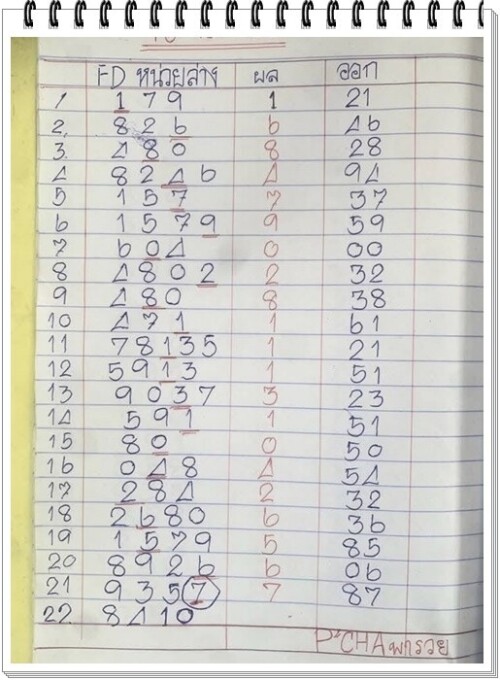 FD หน่วยล่าง ผล ออก
1 1 7 9 1 21
2. 8 2 6 6 46
3. 4 8 0 8 28
4 8 2 4 6 4 94
5 1 5 7 7 37
6 1 5 7 9 9 59
7 6 0 4 0 00
8 4 8 0 2 2 32
9 4 8 0 8 38
10 4 7 1 1 61
11 7 8 1 3 5 1 21
12 5 9 1 3 1 51
13 9 0 3 7 3 23
14 5 9 1 1 51
15 8 0 0 50
16 0 4 8 4 54
17 2 8 4 2 32
18 2 6 8 0 6 36
19 1 5 7 9 5 85
20 8 9 2 6 6 06
21 9 3 5 7 7 87
22. 8 4 1 0
P'CHAพารวย